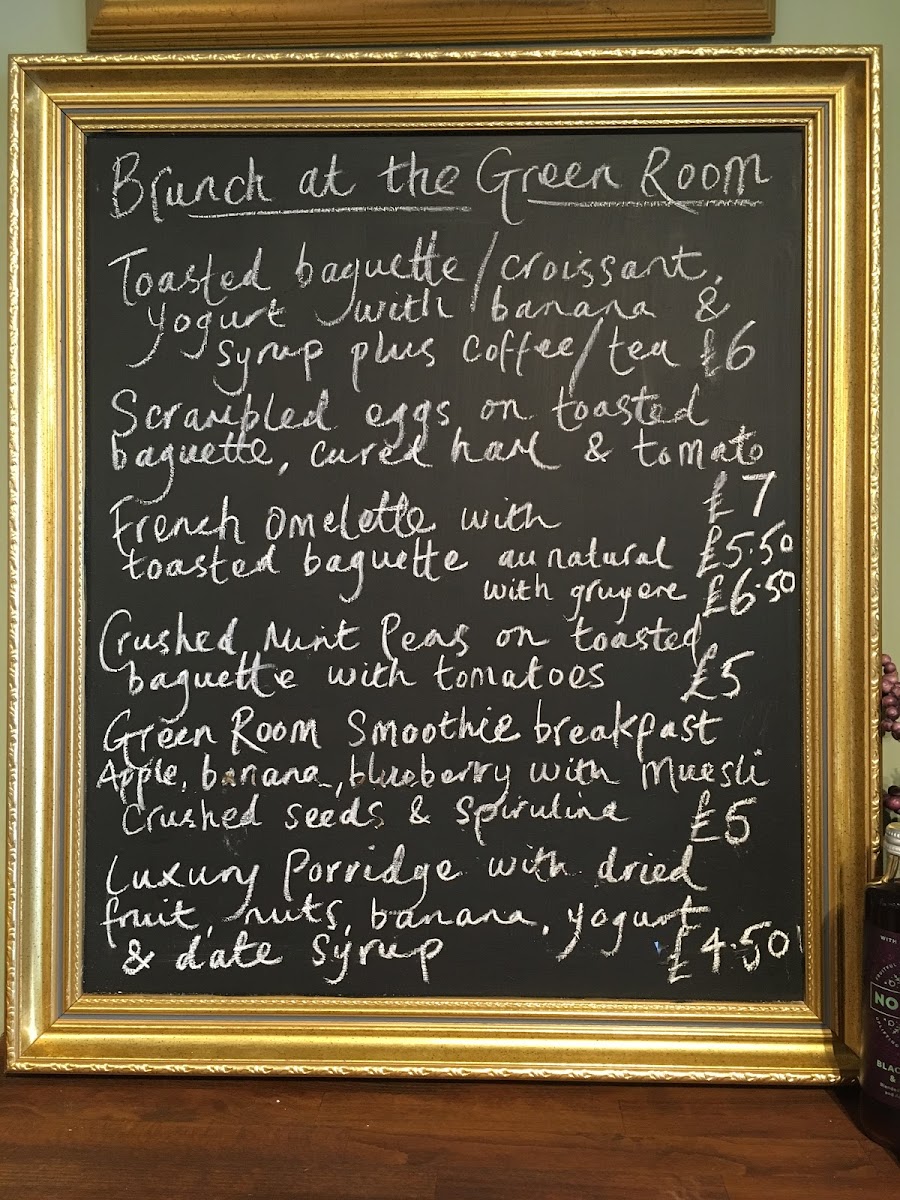 Brunch at the Green Room
Toasted baguette/croissant,
yogurt with banana &
syrup plus coffee/tea £6
Scrambled eggs on toasted
baguette, cured ham & tomato
£7
French Omelette with
toasted baguette au natural £5.50
with gruyere £6.50
Crushed Mint Peas on toasted
baguette with tomatoes £5
Green Room Smoothie breakfast
Apple, banana, blueberry with Muesli
Crushed seeds & Spirulina £5
Luxury Porridge with dried
fruit, nuts, banana, yogurt
& date syrup £4.50
WITH
NO
BLAC
&